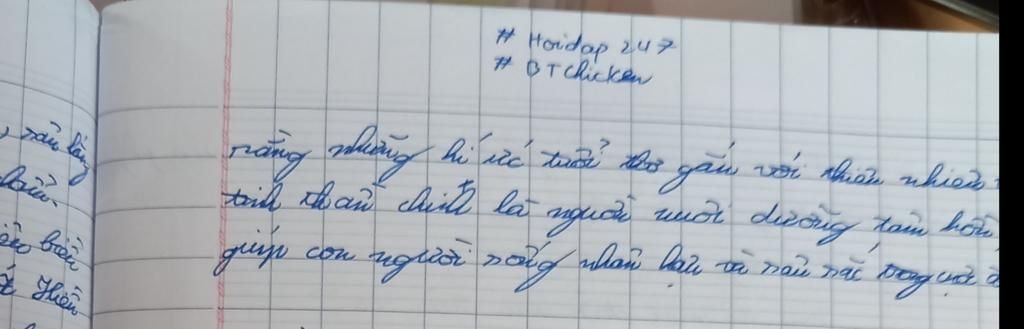 # Hoidap 247
# BTchicken
rằng những kí ức tuổi thơ gắn với thiên nhiên
tinh thần chính là người nuôi dưỡng tâm hồn
giúp con người sống nhân hậu và sâu sắc trong cuộc